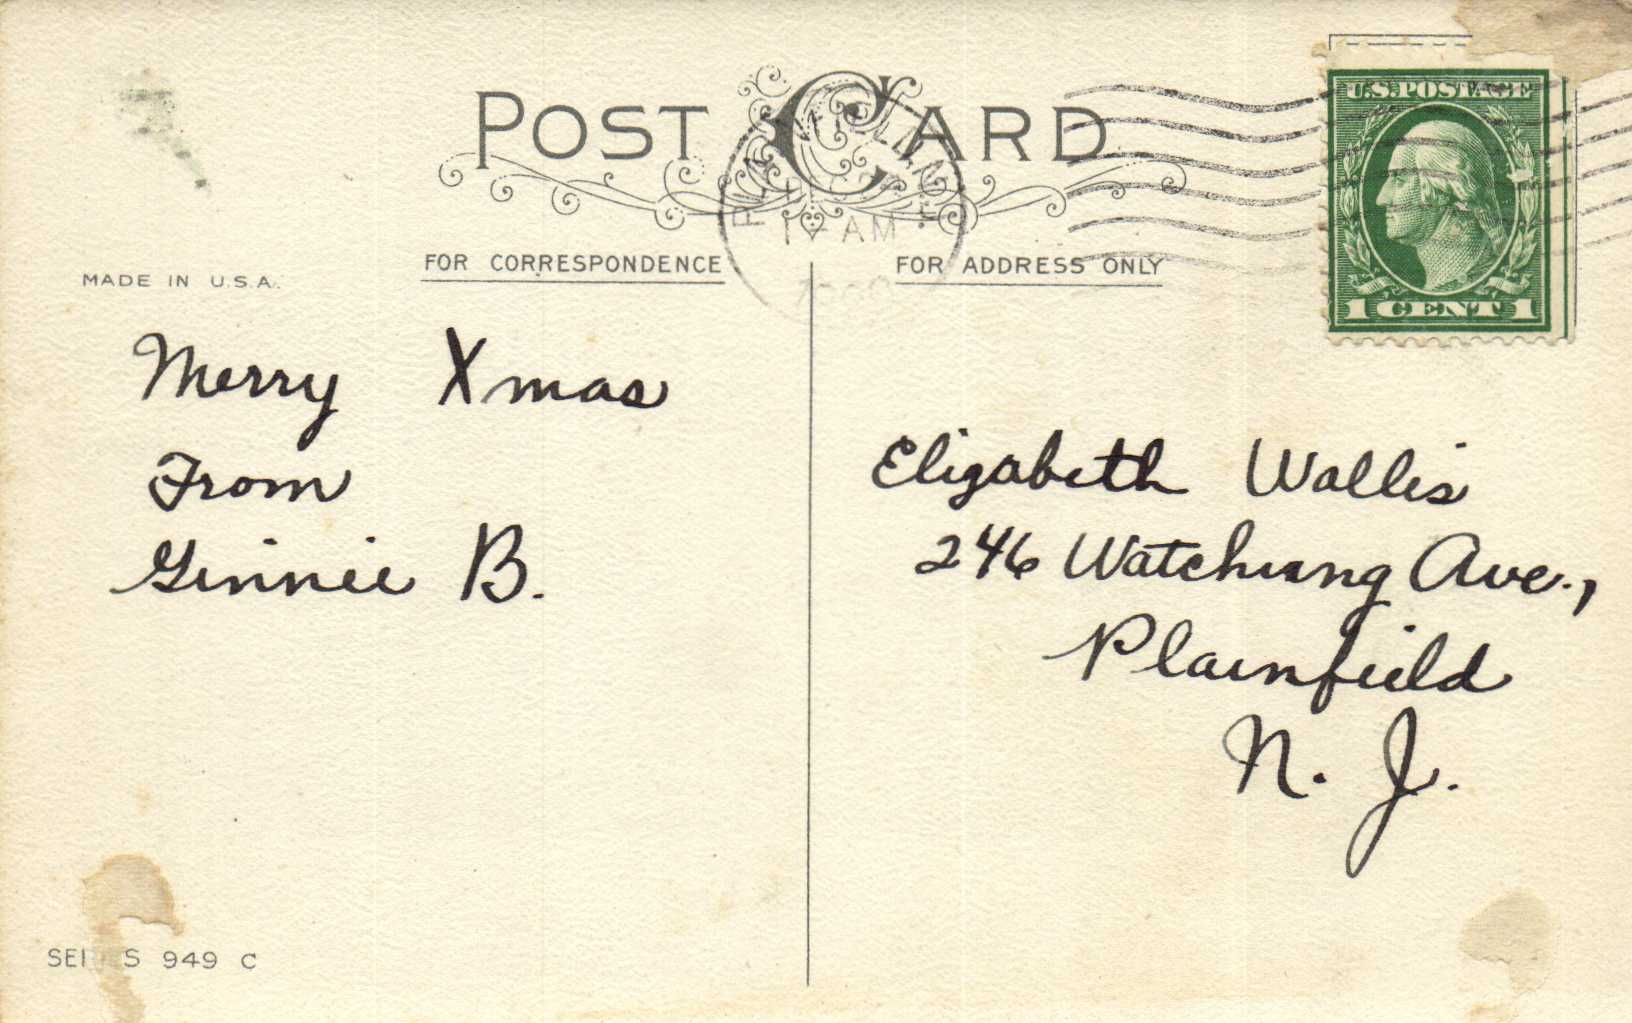 POST CARD
U.S. POSTAGE
AM
FOR CORRESPONDENCE
FOR ADDRESS ONLY
MADE IN U.S.A.
1 CENT 1
Merry Xmas
From
Ginnie B.
Elizabeth Wallis
246 Watchung Ave.,
Plainfield
N. J.
SERIES 949 C